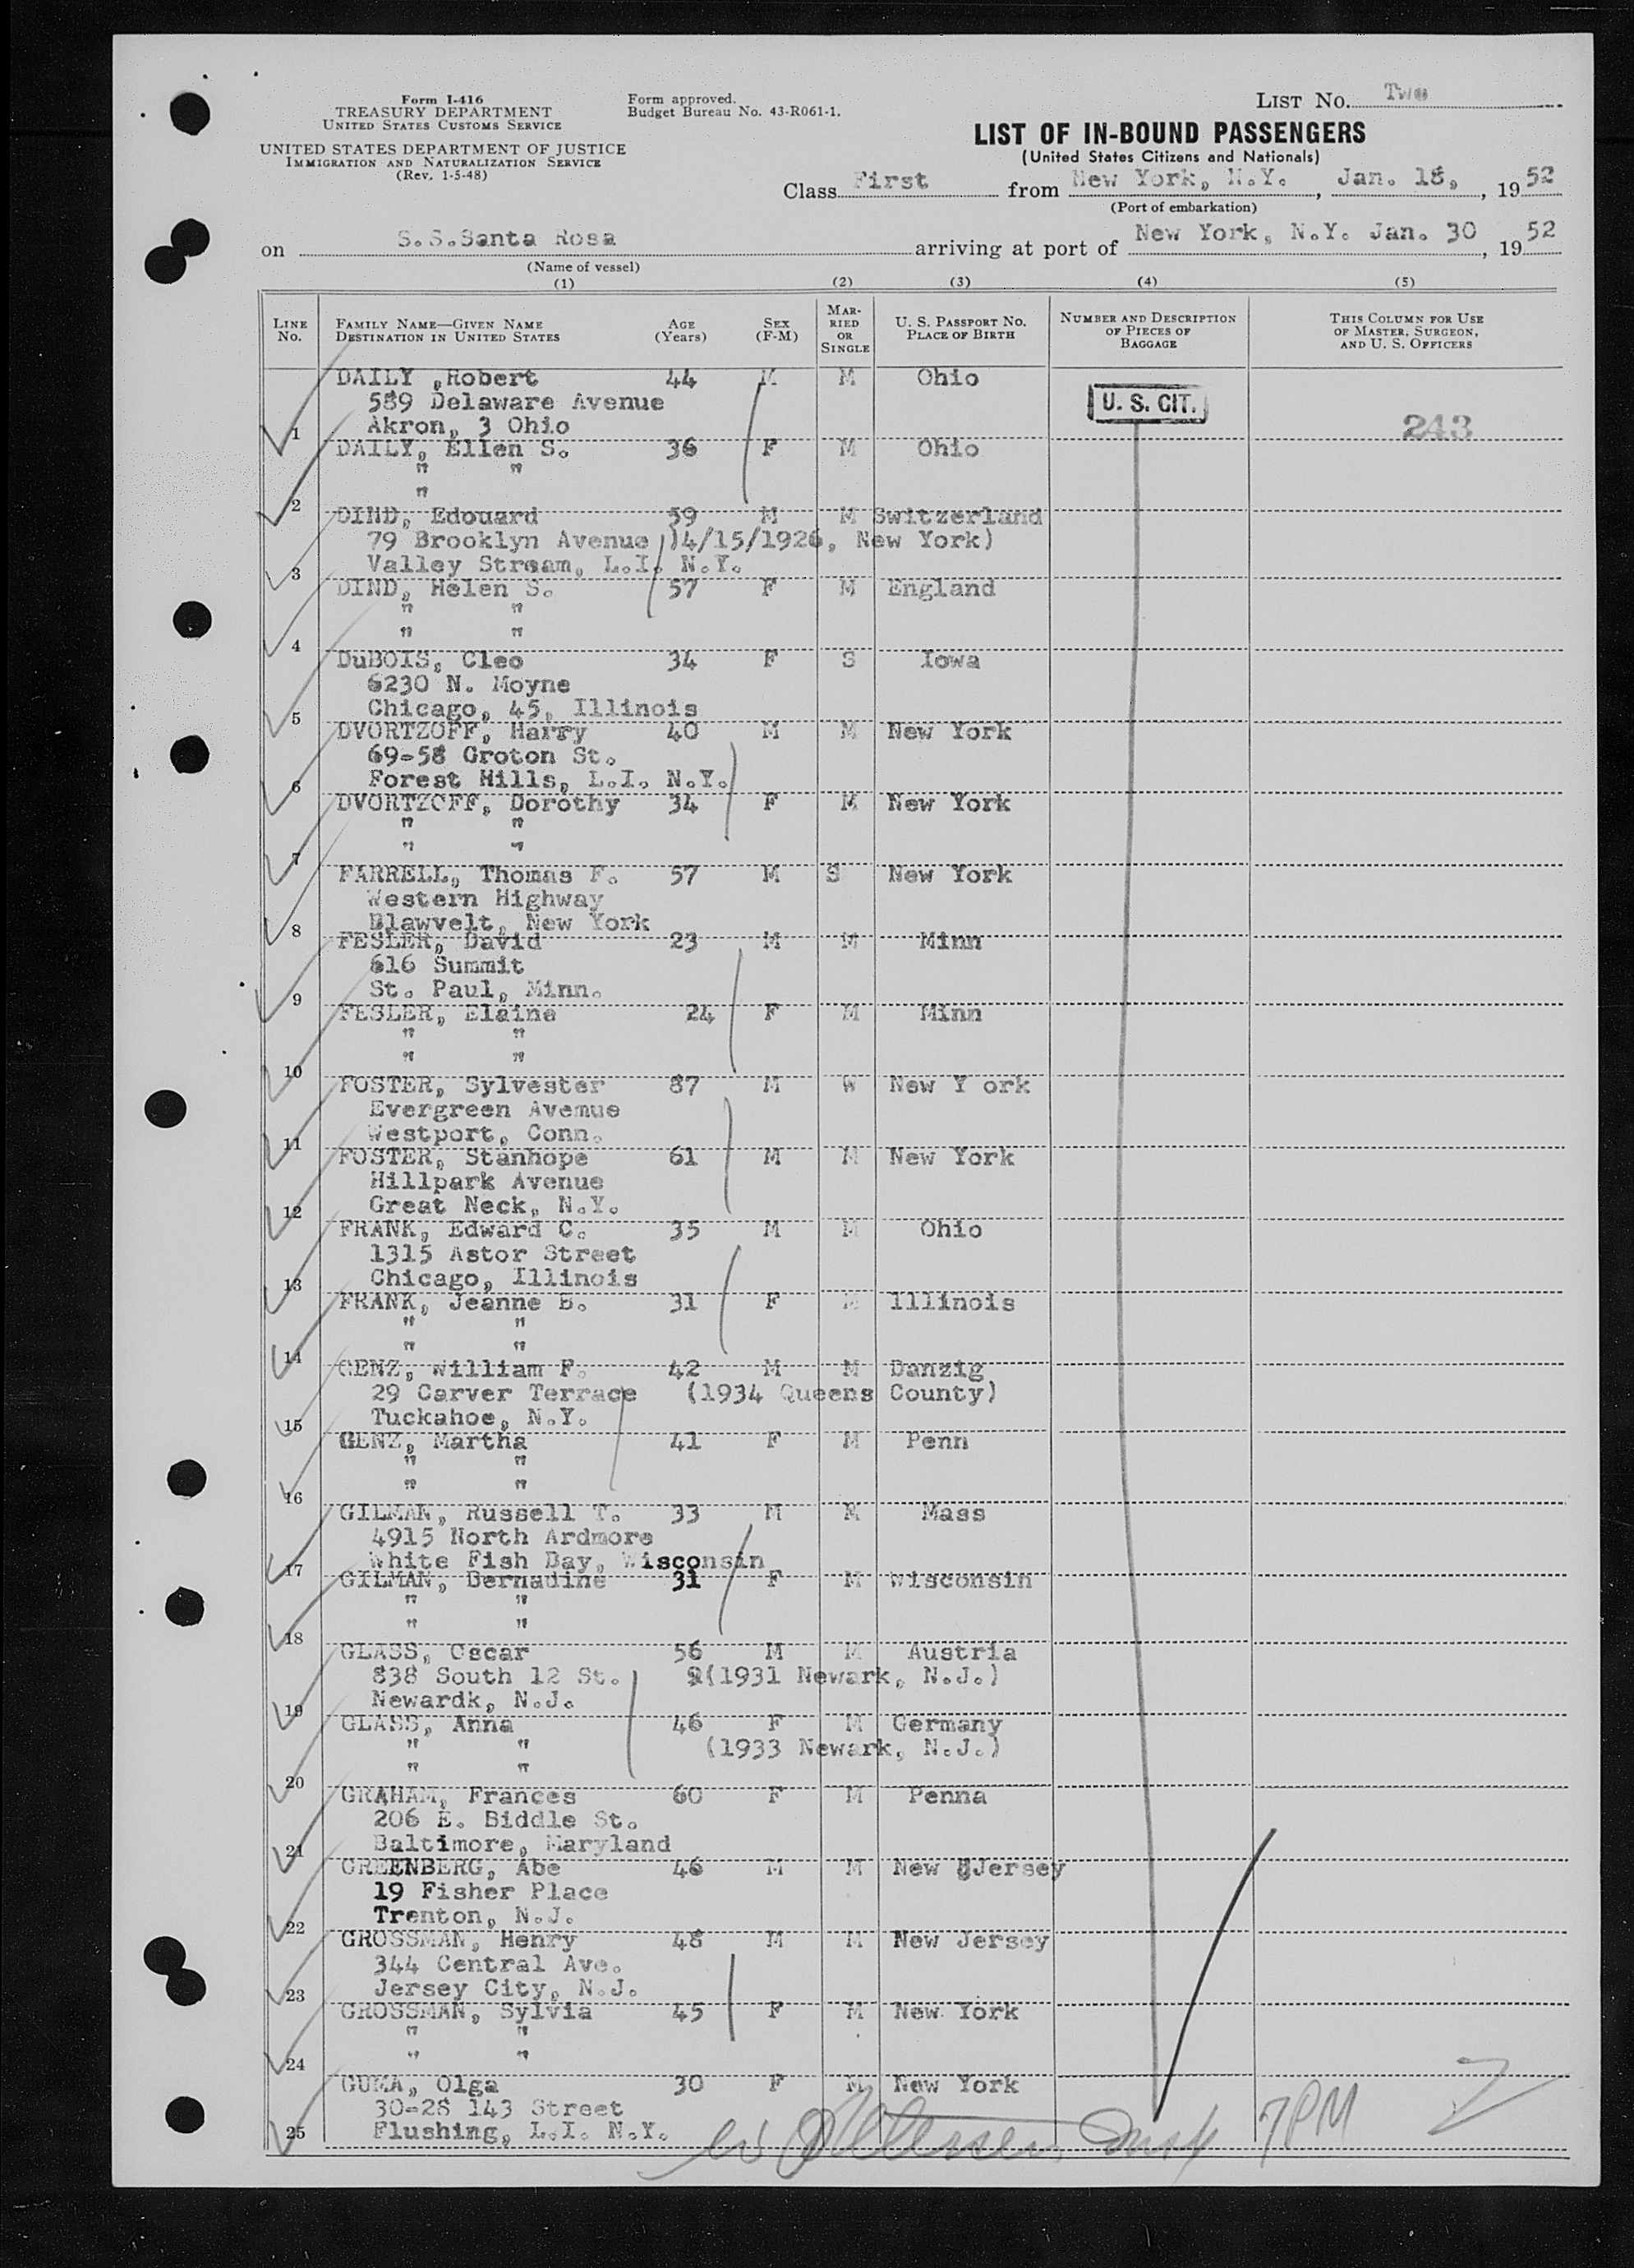 Form I-416
TREASURY DEPARTMENT
UNITED STATES CUSTOMS SERVICE
UNITED STATES DEPARTMENT OF JUSTICE
IMMIGRATION AND NATURALIZATION SERVICE
(Rev. 1-5-48)
Form approved.
Budget Bureau No. 43-R061-1.
LIST No. Two
LIST OF IN-BOUND PASSENGERS
(United States Citizens and Nationals)
Class First from New York, N.Y. , Jan. 18, , 19 52
(Port of embarkation)
on S.S.Santa Rosa arriving at port of New York, N.Y. Jan. 30 , 19 52
(Name of vessel)
(1) (2) (3) (4) (5)
LINE No. FAMILY NAME—GIVEN NAME DESTINATION IN UNITED STATES AGE (Years) SEX (F-M) MARRIED OR SINGLE U. S. PASSPORT NO. PLACE OF BIRTH NUMBER AND DESCRIPTION OF PIECES OF BAGGAGE THIS COLUMN FOR USE OF MASTER, SURGEON, AND U. S. OFFICERS
DAILY ,Robert 44 M M Ohio
589 Delaware Avenue U. S. CIT.
1 Akron, 3 Ohio 243
DAILY, Ellen S. 36 F M Ohio
" "
2 "
DIND, Edouard 59 M M Switzerland
79 Brooklyn Avenue )4/15/1926, New York)
3 Valley Stream, L.I. N.Y.
DIND, Helen S. 57 F M England
" "
4 " "
DuBOIS, Cleo 34 F S Iowa
6230 N. Moyne
5 Chicago, 45, Illinois
DVORTZOFF, Harry 40 M M New York
69-58 Groton St.
6 Forest Hills, L.I. N.Y.
DVORTZOFF, Dorothy 34 F M New York
" "
7 " "
FARRELL, Thomas F. 57 M S New York
Western Highway
8 Blawvelt, New York
FESLER, David 23 M M Minn
616 Summit
9 St. Paul, Minn.
FESLER, Elaine 24 F M Minn
" "
10 " "
FOSTER, Sylvester 87 M W New Y ork
Evergreen Avenue
11 Westport, Conn.
FOSTER, Stanhope 61 M M New York
Hillpark Avenue
12 Great Neck, N.Y.
FRANK, Edward C. 35 M M Ohio
1315 Astor Street
13 Chicago, Illinois
FRANK, Jeanne B. 31 F M Illinois
" "
14 " "
GENZ, William F. 42 M M Danzig
29 Carver Terrace (1934 Queens County)
15 Tuckahoe, N.Y.
GENZ, Martha 41 F M Penn
" "
16 " "
GILMAN, Russell T. 33 M M Mass
4915 North Ardmore
17 White Fish Bay, Wisconsin
GILMAN, Bernadine 31 F M Wisconsin
" "
18 " "
GLASS, Oscar 56 M M Austria
838 South 12 St. (1931 Newark, N.J.)
19 Newardk, N.J.
GLASS, Anna 46 F M Germany
" " (1933 Newark, N.J.)
20 " "
GRAHAM, Frances 60 F M Penna
206 E. Biddle St.
21 Baltimore, Maryland
GREENBERG, Abe 46 M M New Jersey
19 Fisher Place
22 Trenton, N.J.
GROSSMAN, Henry 48 M M New Jersey
344 Central Ave.
23 Jersey City, N.J.
GROSSMAN, Sylvia 45 F M New York
" "
24 " "
GUMA, Olga 30 F M New York
30-28 143 Street
25 Flushing, L.I. N.Y. 7PM